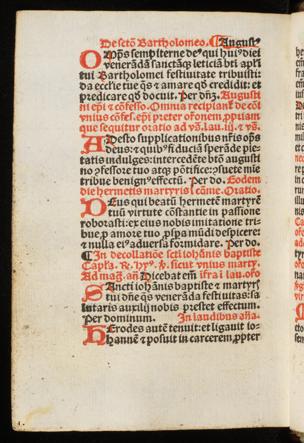 De scto Bartholomeo. ¶ Augusti
Omps sempiterne deꝰ qui huiꝰ diei
venerādā sanctāqꝫ leticiā bti apli
tui Bartholomei festiuitate tribuisti:
da eccłie tue qs ⁊ amare qđ credidit: et
predicare qđ docuit. Per dnꝫ. Augusti
ni epi ⁊ cōfesso. Omnia recipiant̄ de cōi
vnius cōfes. epi preter oronem, ppriam
que sequitur oratio ad
Adesto supplicationibus nris ops
deus: ⁊ quibꝰ fiduciā sperāde pie
tatis indulges: intercedēte bto augusti
no ꝯfessore tuo atqꝫ pōtifice: ꝯsuete mie
tribue benignꝰ effectū. Per do. Eodem
die hermetis martyris ī cōmē. Oratio.
Deus qui beatū hermetē martyrē
tuū virtute cōstantie in passione
roborasti: ex eius nobis imitatione tri-
bue, p amore tuo, pspa mūdi despicere:
⁊ nulla eiꝰ aduersa formidare. Per do.
¶ In decollatōe scti iohānis baptiste
sicut vnius marty.
Dicebat em̄
Sancti iohānis baptiste ⁊ martyrꝭ
tui dne qs venerāda festiuitas: sa
lutaris auxilij nobis prestet effectum.
Per dominum. In laudibus aña.
Herodes autē tenuit: et ligauit io-
hannē ⁊ posuit in carcerem, ppter